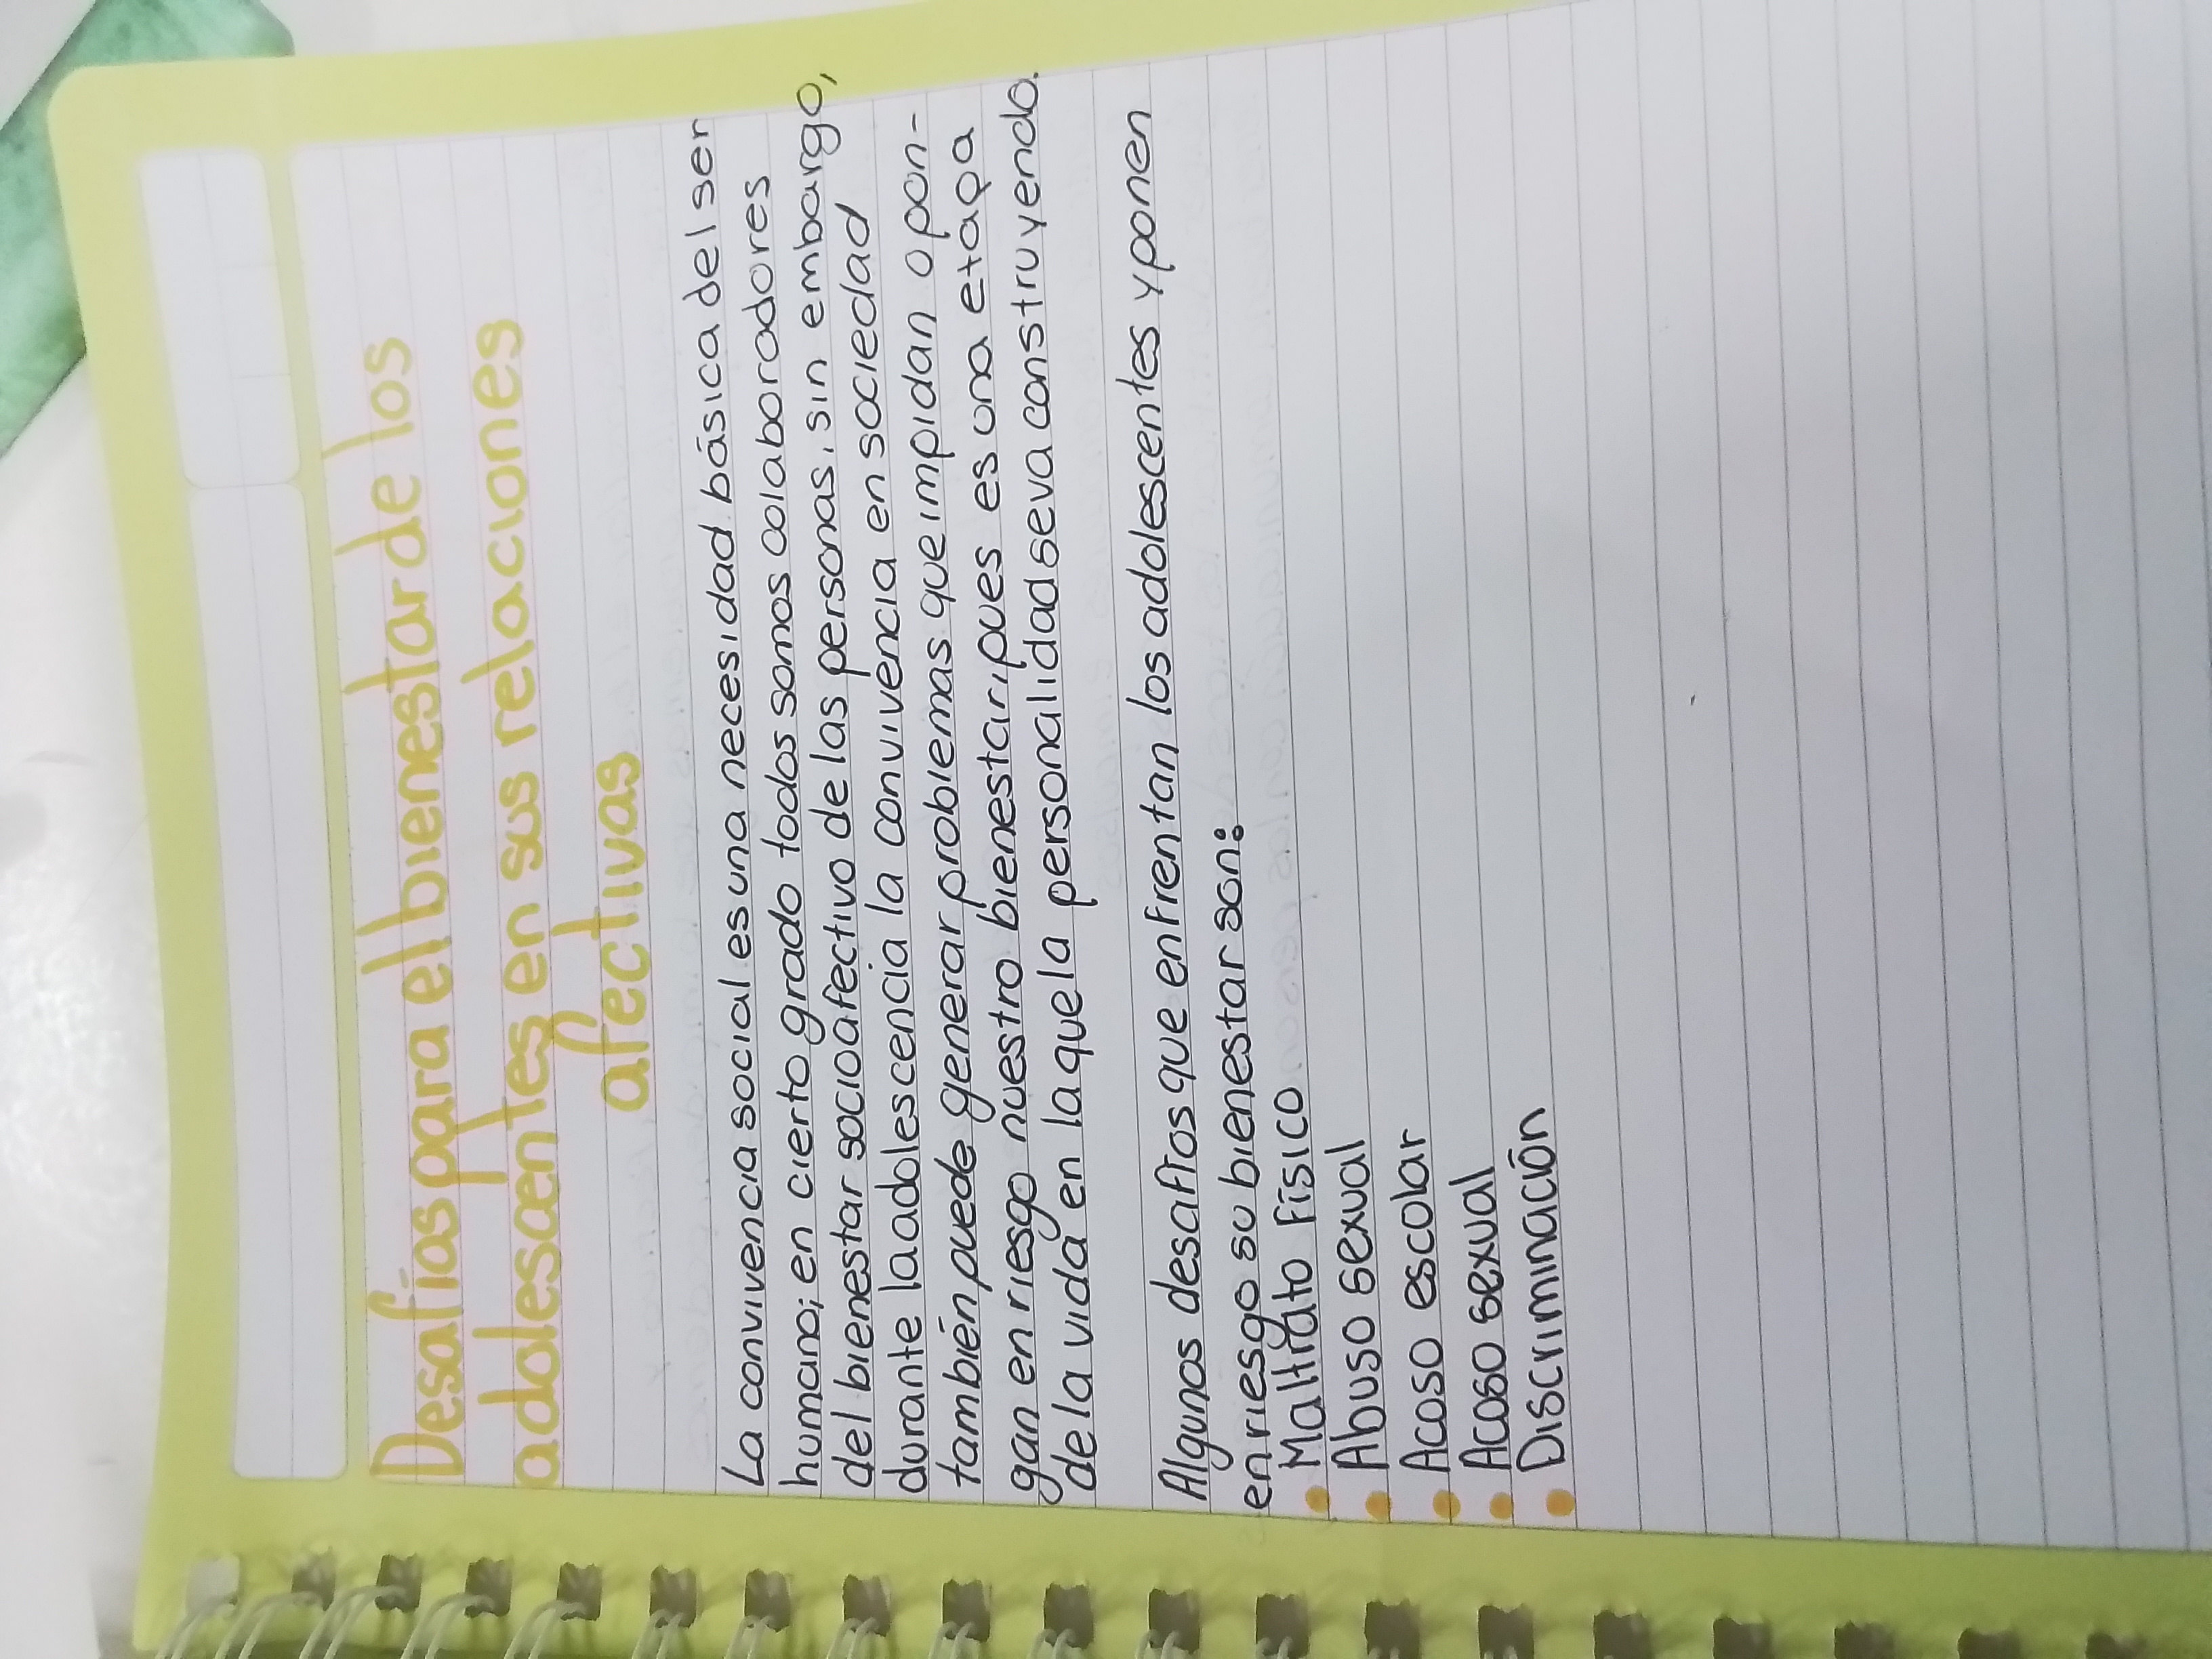 Desafíos para el bienestar de los
adolescentes en sus relaciones
afectivas
La convivencia social es una necesidad básica del ser
humano; en cierto grado todos somos colaboradores
del bienestar socioafectivo de las personas, sin embargo,
durante la adolescencia la convivencia en sociedad
también puede generar problemas que impidan o pon-
gan en riesgo nuestro bienestar, pues es una etapa
de la vida en la que la personalidad se va construyendo.
Algunos desafíos que enfrentan los adolescentes y ponen
en riesgo su bienestar son:
• Maltrato Físico
• Abuso sexual
• Acoso escolar
• Acoso sexual
• Discriminación